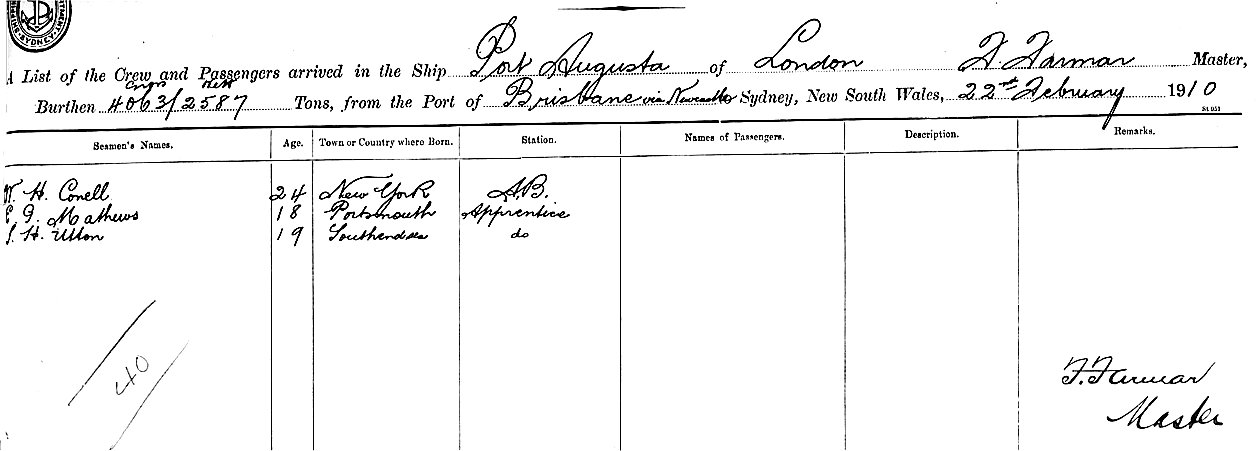 SYDNEY
A List of the Crew and Passengers arrived in the Ship Port Augusta of London F. Farmar Master,
Gross Nett
Burthen 4063/2587 Tons, from the Port of Brisbane via Newcastle Sydney, New South Wales, 22nd February 1910
St 051
Seamen's Names. Age. Town or Country where Born. Station. Names of Passengers. Description. Remarks.
W. H. Conell 24 New York A.B.
E. G. Mathews 18 Portsmouth Apprentice
H. 19 Southendsea do
40
F. Farmar
Master